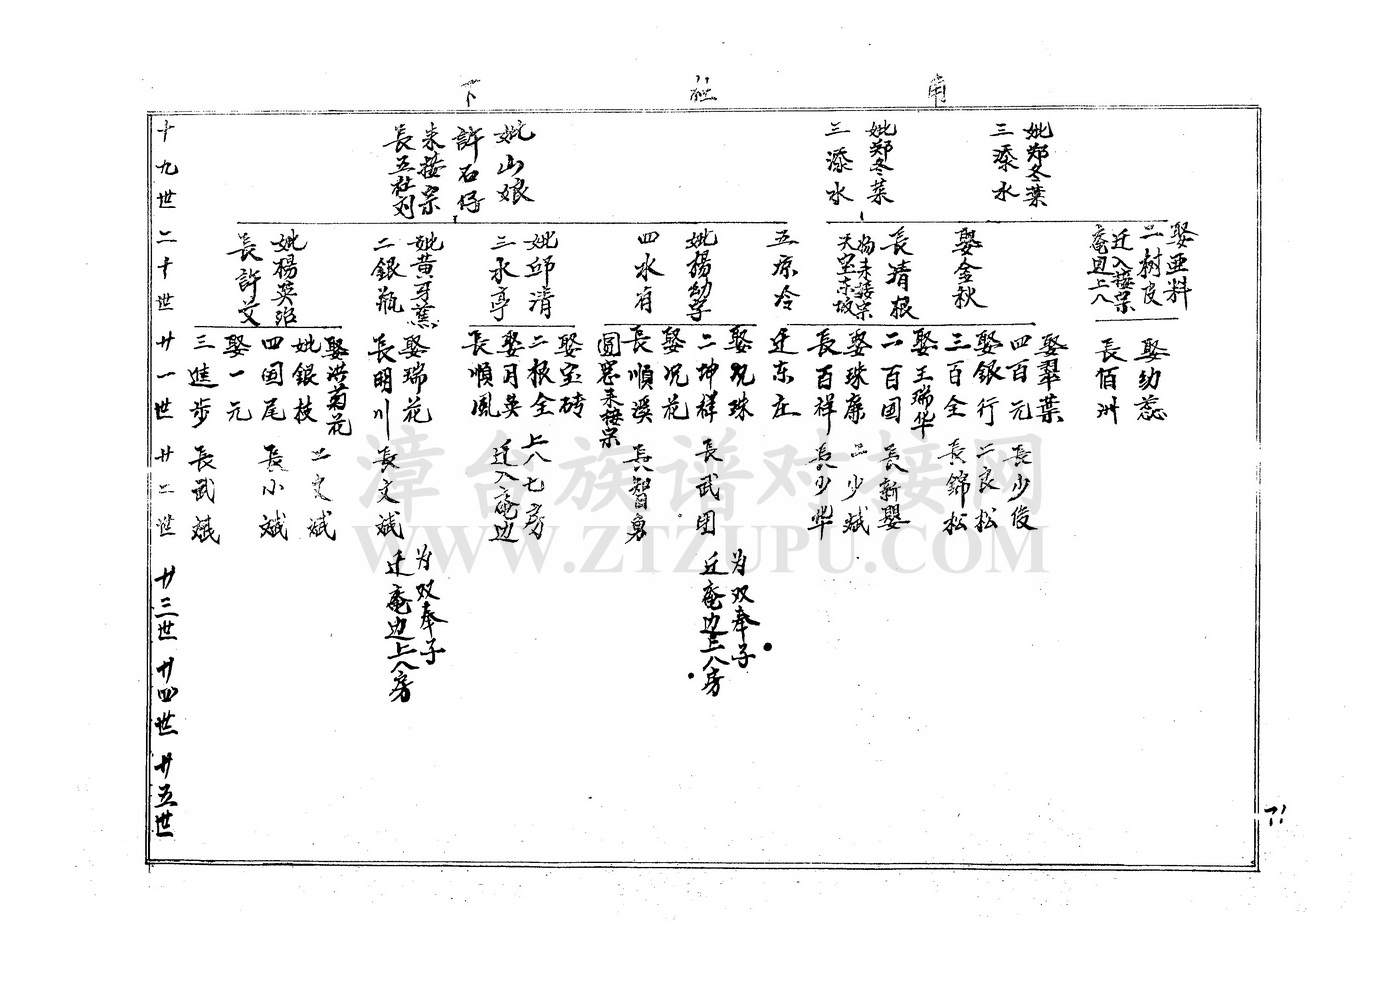 下
十九世
二十世
廿一世
廿二世
廿三世
廿四世
廿五世
妣郑冬葉
三添水
妣郑冬菜
三添水
妣山娘
許石仔
来接宗
長五社刘
娶亜料
二树良
迁入接宗
庵边上八
娶金秋
長清根
天宝东坂
五原冷
妣楊幼字
四水有
妣邱清
三水亭
妣黄牙蕉
二銀瓶
妣楊英治
長許艾
娶幼蕊
長佰洲
娶翠葉
四百元
娶銀行
三百全
娶王瑞华
二百国
娶珠廉
長百祥
迁东庄
娶况珠
二坤祥
娶况花
長順溪
来接宗
娶宝砖
二根全
娶月英
長順風
娶瑞花
長明川
娶洪菊花
四国尾
妣銀枝
娶一元
三進步
長少俊
二良松
長錦松
長新嬰
二少斌
長少华
長武团
長智勇
上八七房
迁入庵边
長文斌
二文斌
長小斌
長武斌
为双奉子
迁庵边三八房
为双奉子
迁庵边上八房
71
漳台族谱对接网
WWW.ZTZUPU.COM